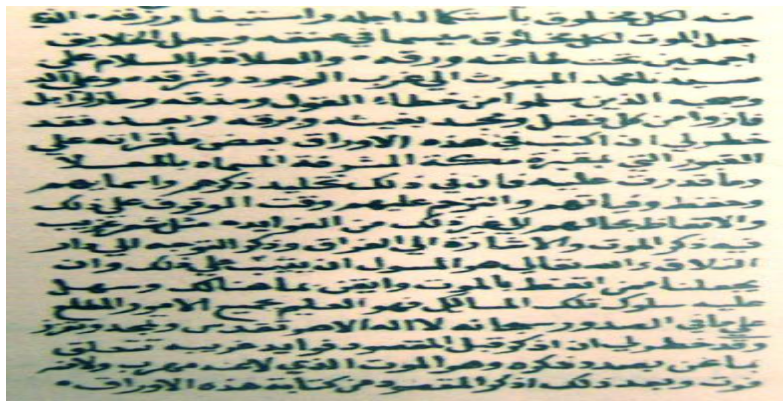 منه لكل مخلوق باستكمال اجله واستيفا ورزقه الذي
جعل الموت لكل مخلوق ميسما في عنقه وجعل الخلايق
اجمعين تحت طاعته ورقه والصلاة والسلام على
سيدنا محمد المبعوث الى غرب الوجود وشرقه وعلى اله
وصحبه الذين سلموا من خطاء القول ومذقه وحازوا بل
فازوا من كل فضل ومجد بغيثه وودقه وبعد فقد
خطر لي ان اكتب في هذه الاوراق بعض ما قراته على
القبور التي بمقبرة مكة المشرفة المسماه بالمعلا
وما قدرت عليه فان في ذلك تخليد ذكرهم واسمايهم
وحفظ وفياتهم والترحم عليهم وقت الوقوف على ذلك
والاتعاظ بحالهم الى غير ذلك من الفوايد مثل
فيه ذكر الموت والاشارة الى الفراق وذكر التوجه الى دار
التلاق والله تعالى هو المسول ان يثيب على ذلك وان
يجعلنا من اتعظ بالموت وايقن بما هنالك وسهل
عليه سلوك تلك المسالك فهو العليم بجميع الامور المطلع
على ما في الصدور سبحانه لا اله الا هو تقدس وتمجد وتفرد
وقد خطر لي ان اذكر قبل المقصود فوايد غريبه تتعلق
بما نحن بصدد ذكره وهو الموت الذي لا عنه مهرب ولا
فوت وبعد ذلك اذكر المقصود من كتابة هذه الاوراق